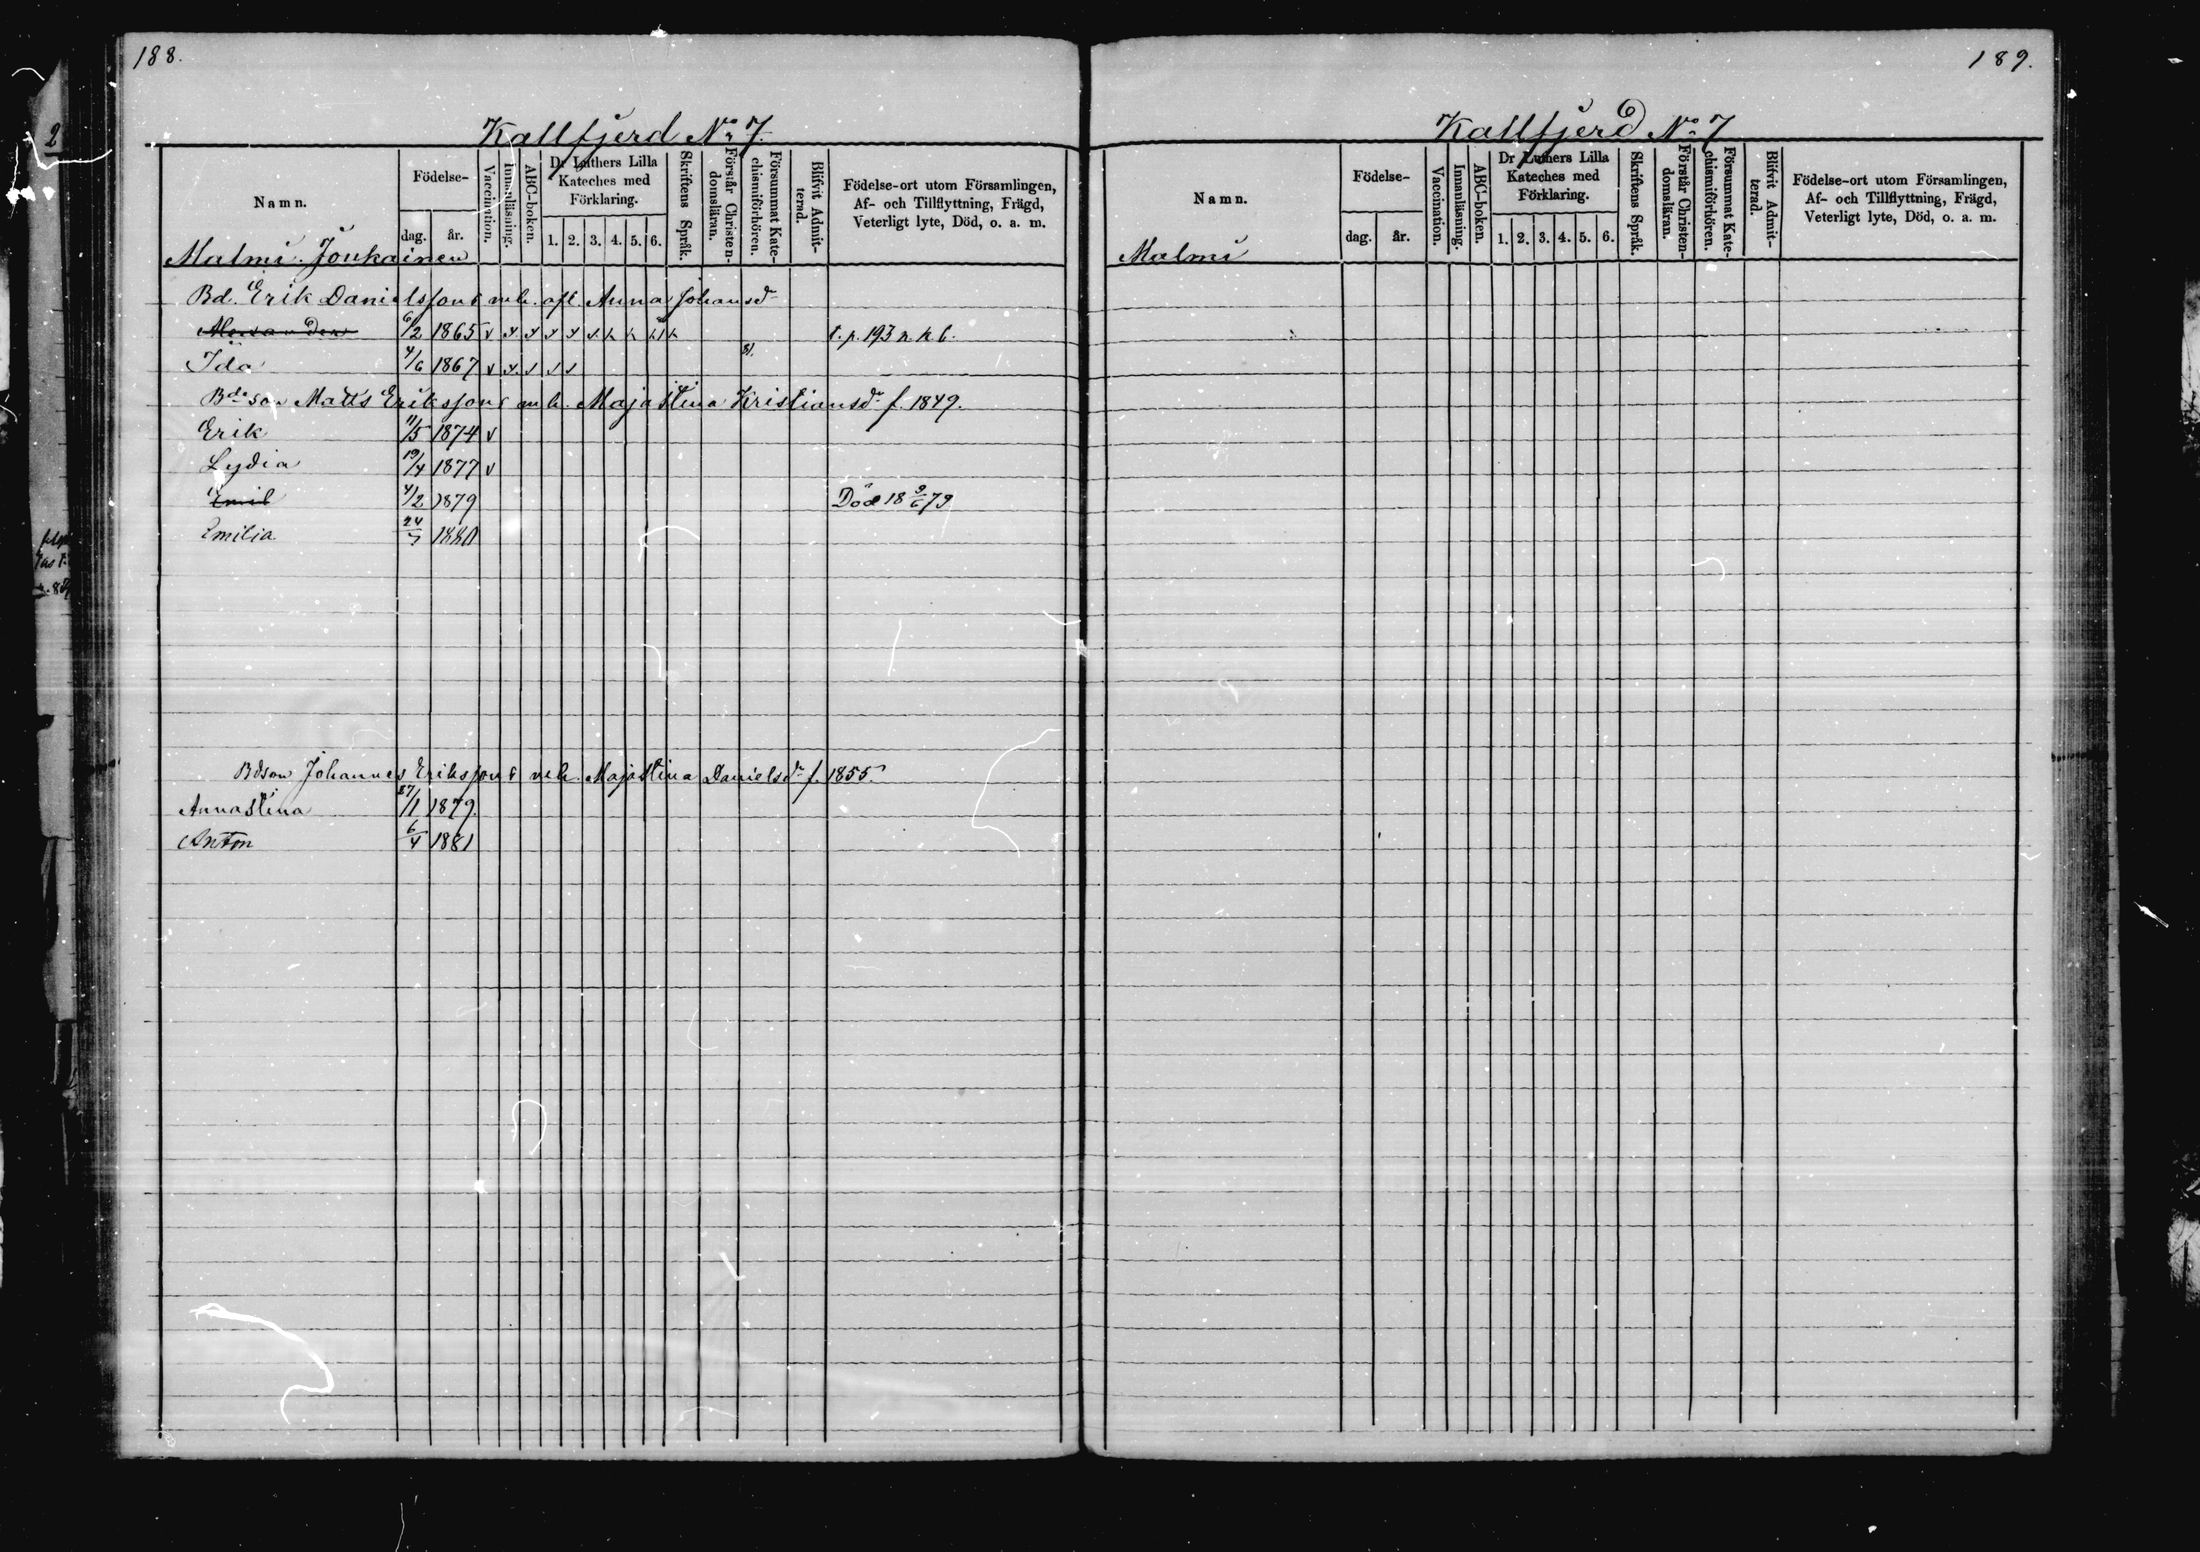 188.
Kallfjerd No 7.
Namn.
Födelse-
dag.
år.
Vaccination.
Innanläsning.
ABC-boken.
Dr Luthers Lilla
Kateches med
Förklaring.
1. 2. 3. 4. 5. 6.
Skriftens Språk.
Förstår Christen-
domsläran.
Försummat Kate-
chismiförhören.
Blifvit Admit-
terad.
Födelse-ort utom Församlingen,
Af- och Tillflyttning, Frägd,
Veterligt lyte, Död, o. a. m.
Malmi Joukainen
Bd. Erik Danielssons m h. afl. Anna Johansdr
Alexander 6/2 1865 t. p. 193 n. k. b.
Ida 4/6 1867 81.
Bdeson Matts Erikssons m h. Majastina Kristiansdr f. 1849.
Erik 11/5 1874 v
Lydia 19/4 1877 v
Emil 4/2 1879 Död 18 9/6 79
Emilia 24/7 1880
Bdson Johannes Erikssons m h. Majastina Danielsdr f. 1855.
Annastina 27/1 1879.
Anton 6/4 1881
189.
Kallfjerd No 7
Namn.
Födelse-
dag.
år.
Vaccination.
Innanläsning.
ABC-boken.
Dr Luthers Lilla
Kateches med
Förklaring.
1. 2. 3. 4. 5. 6.
Skriftens Språk.
Förstår Christen-
domsläran.
Försummat Kate-
chismiförhören.
Blifvit Admit-
terad.
Födelse-ort utom Församlingen,
Af- och Tillflyttning, Frägd,
Veterligt lyte, Död, o. a. m.
Malmi